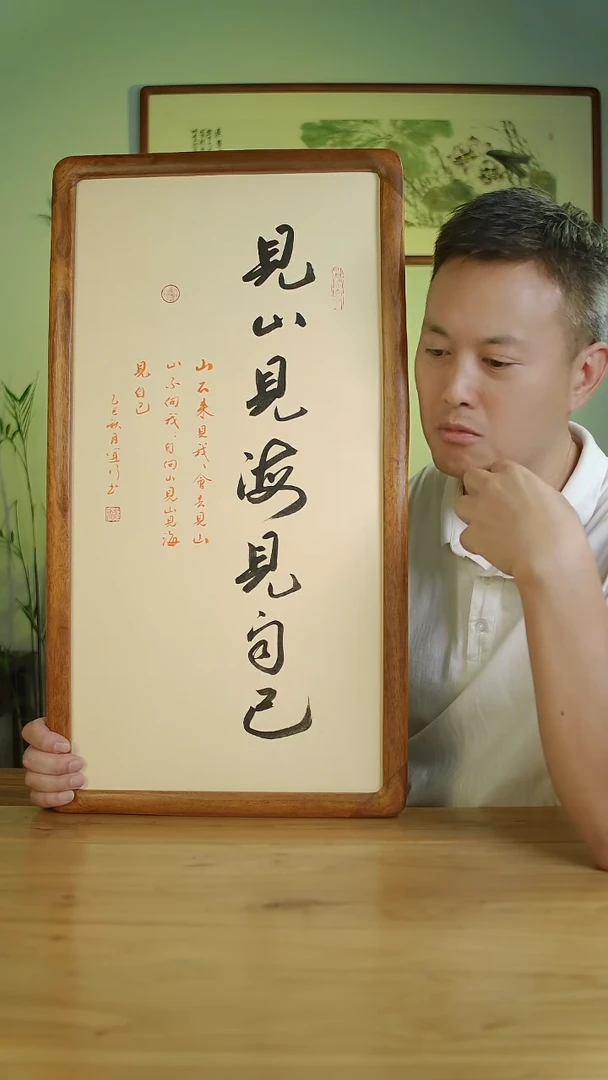 見山見海見自己
山不来見我、會去見山
山不向我、自向山見山見海
見自己
乙巳秋月道行书